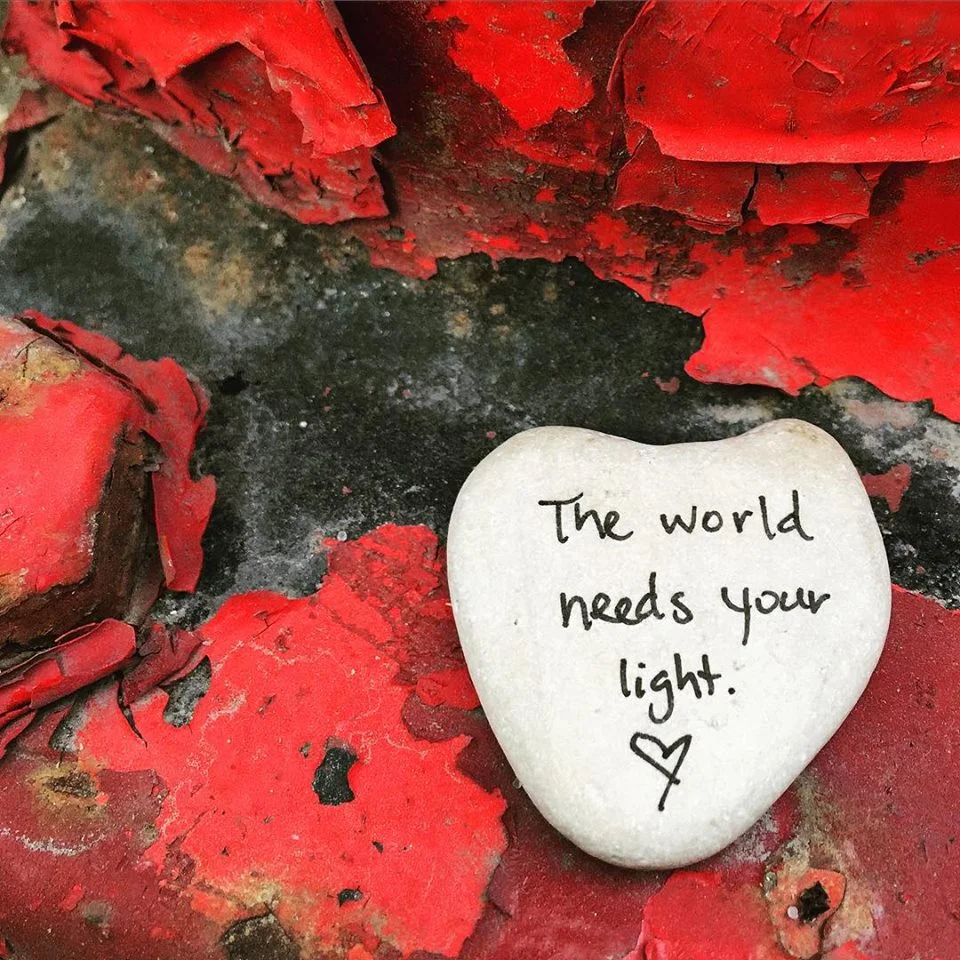 The world
needs your
light.